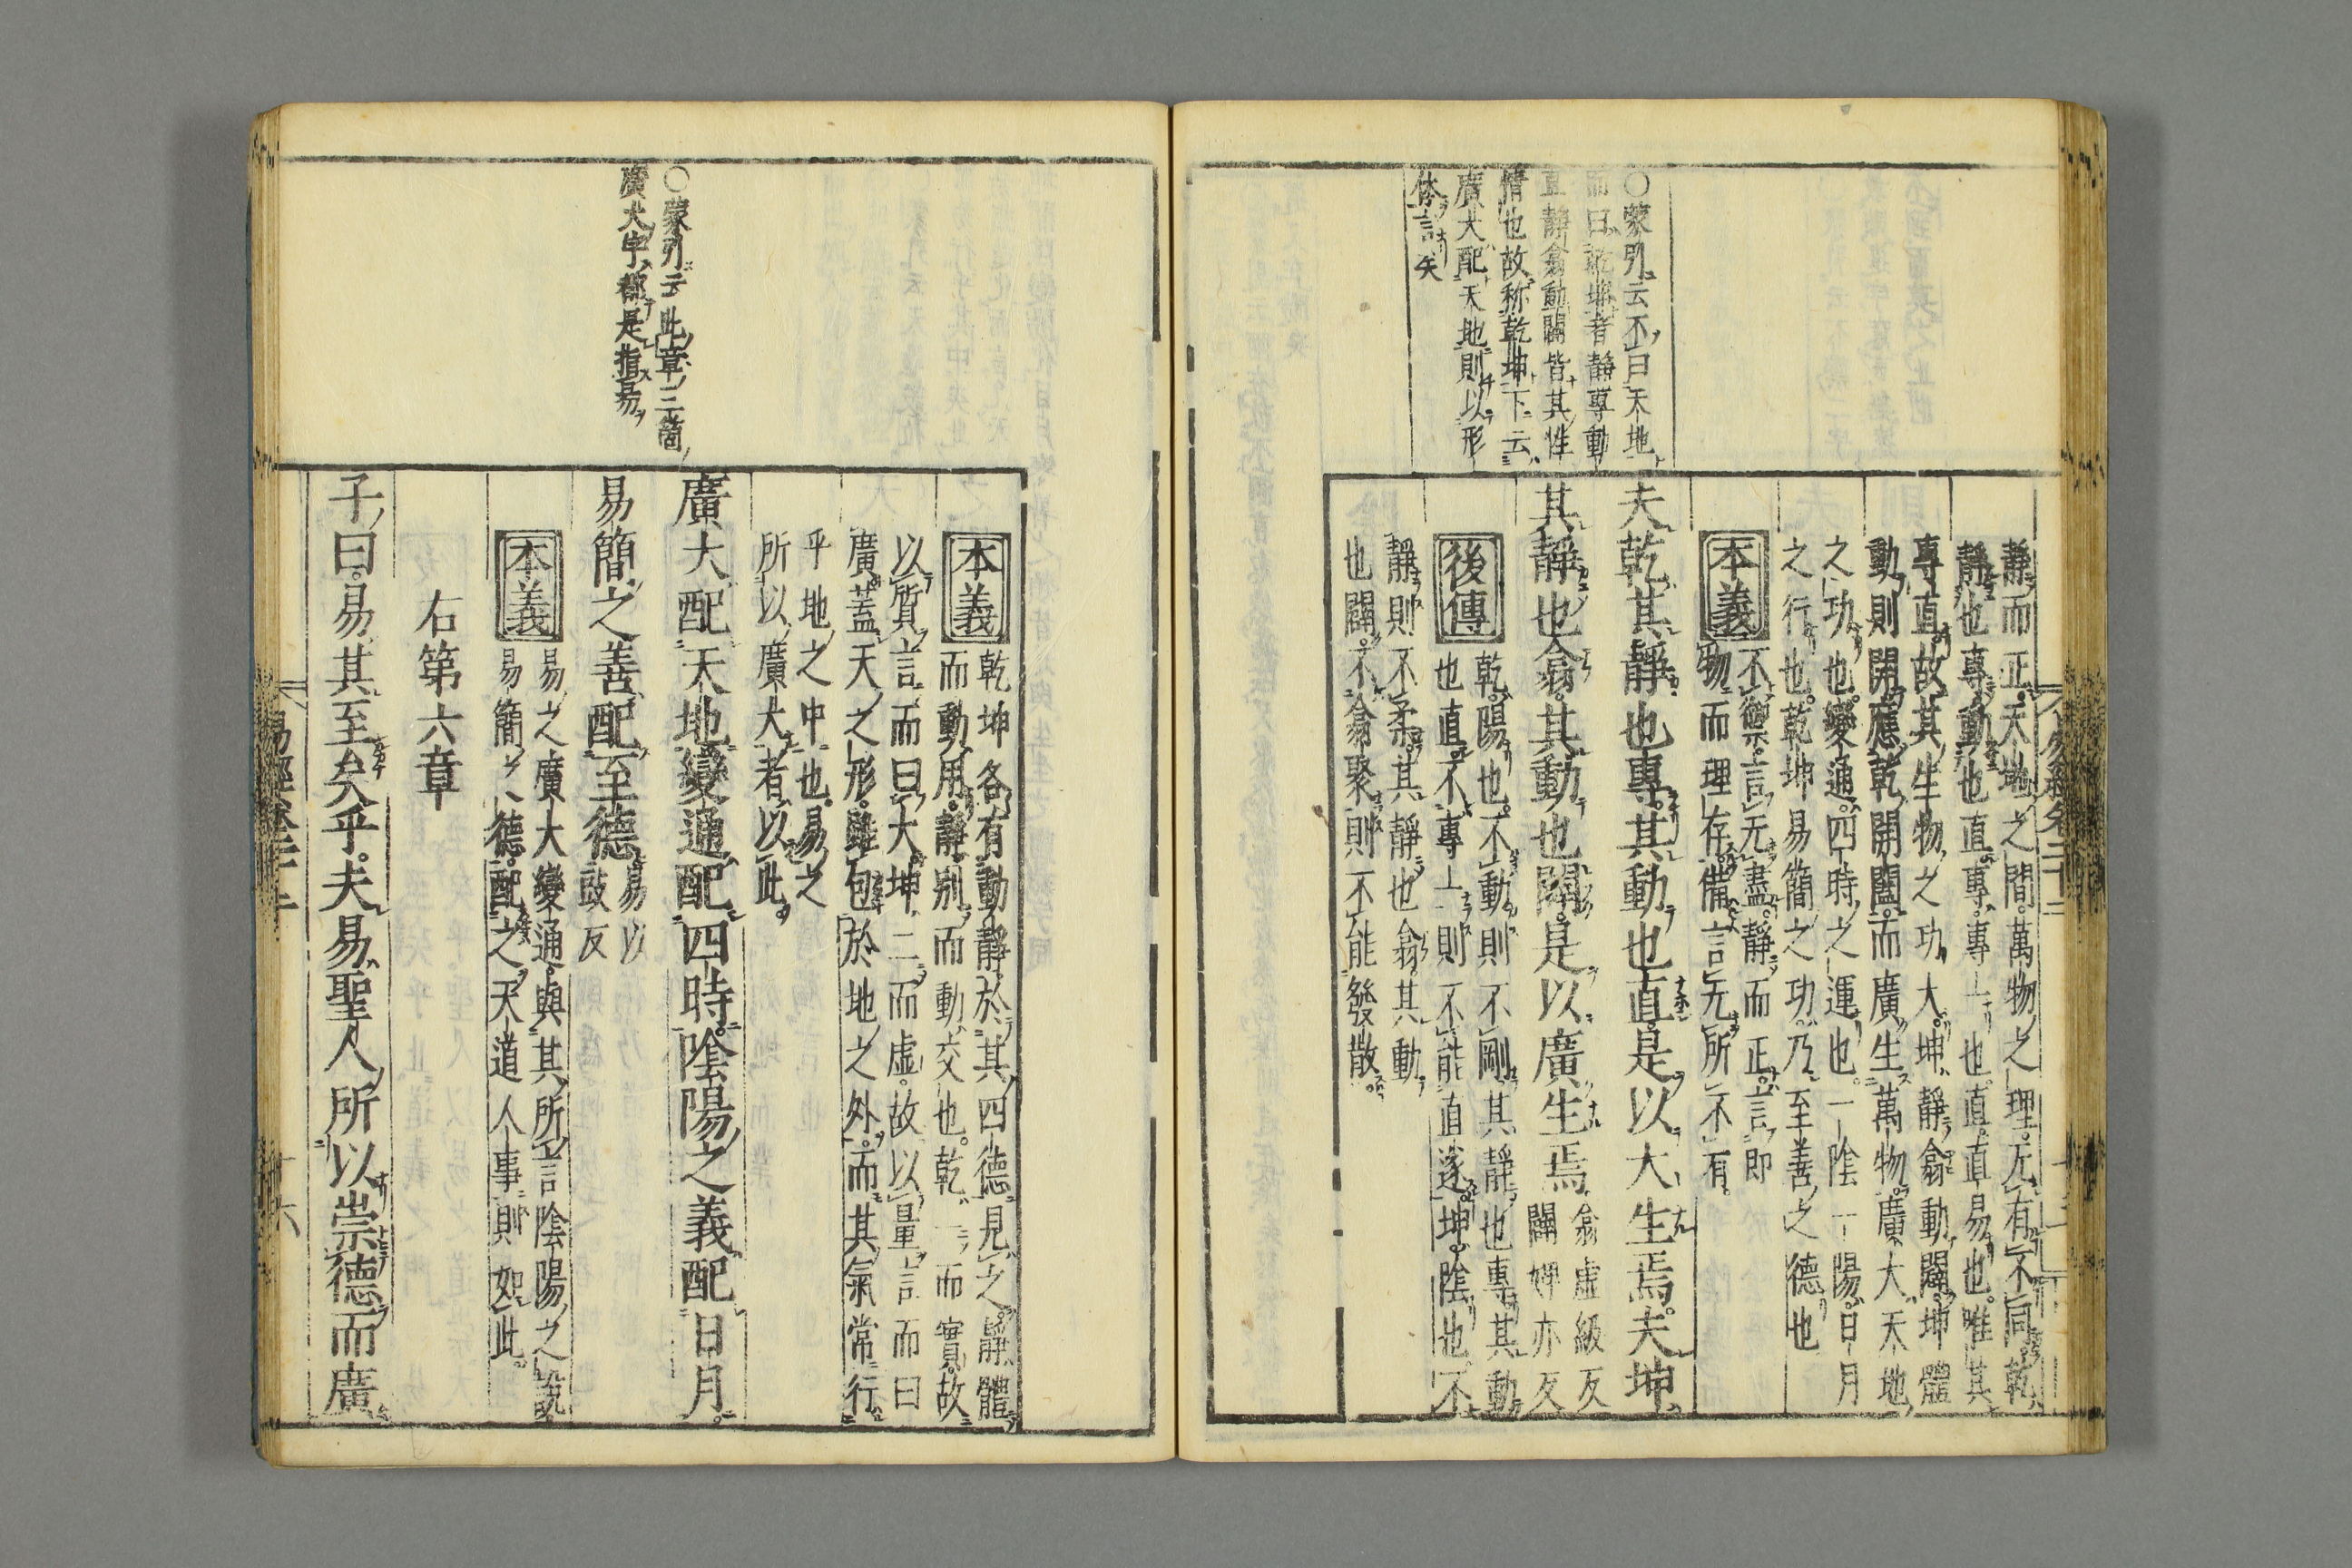 ○蒙引云不曰天地
而曰乾坤者靜專動
直靜翕動闢皆其性
情也故称乾坤下云
廣大配天地則以形
体言矣
靜而正天地之間萬物之理无有不同乾
靜也專動也直專專一也直直易也唯其
專直故其生物之功大坤靜翕動闢坤體
動則開應乾開闔而廣生萬物廣大天地
之功也變通四時之運也一陰一陽日月
之行也乾坤易簡之功乃至善之德也
本義
不禦言无盡靜而正言即
物而理存備言无所不有
夫乾其靜也專其動也直是以大生焉夫坤
其靜也翕其動也闢是以廣生焉
翕虛級反
闢婢亦反
後傳
乾陽也不動則不剛其靜也專其動
也直不專一則不能直遂坤陰也不
靜則不柔其靜也翕其動
也闢不翕聚則不能發散
○蒙引云此章三箇
廣大字都是指易
本義
乾坤各有動靜於其四德見之靜體
而動用靜別而動交也乾一而實故
以質言而曰大坤二而虛故以量言而曰
廣蓋天之形雖包於地之外而其氣常行
乎地之中也易之
所以廣大者以此
廣大配天地變通配四時陰陽之義配日月
易簡之善配至德
易以
豉反
本義
易之廣大變通與其所言陰陽之說
易簡之德配之天道人事則如此
右第六章
子曰易其至矣乎夫易聖人所以崇德而廣